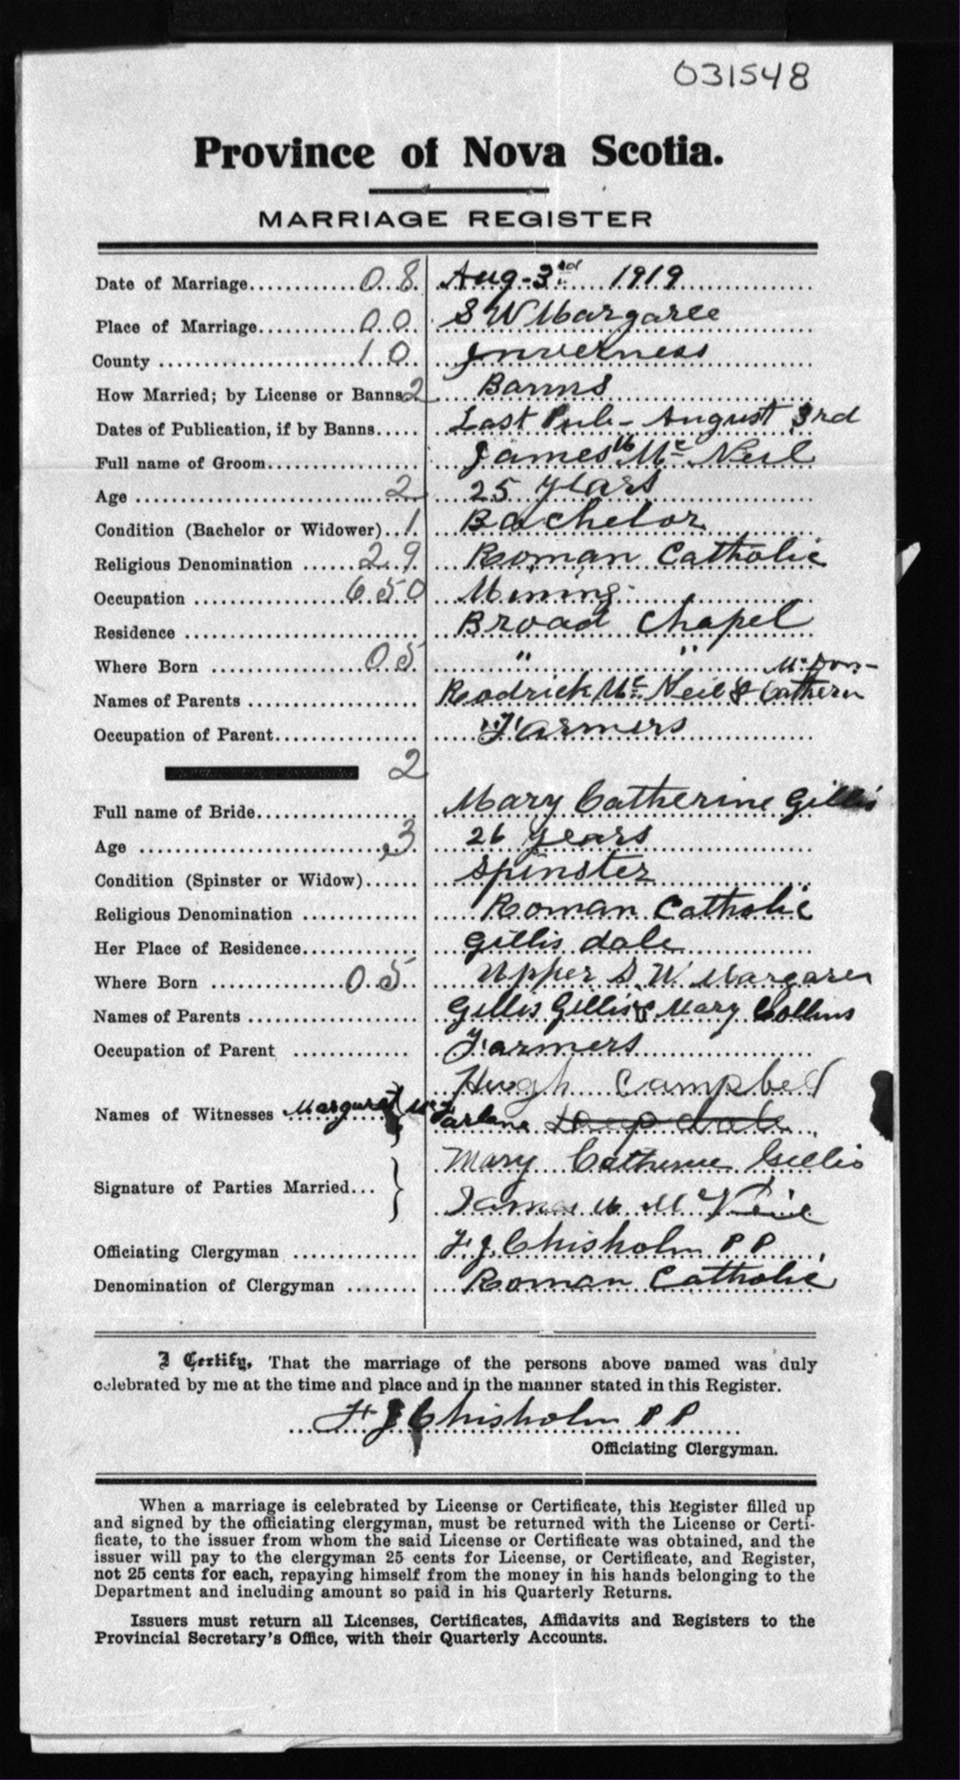 031548
Province of Nova Scotia.
MARRIAGE REGISTER
Date of Marriage............0.8. Aug-3rd 1919
Place of Marriage............0.0. S W Margaree
County ......................1.0. Inverness
How Married; by License or Banns 2 Banns
Dates of Publication, if by Banns..... Last Pub- August 3rd
Full name of Groom................ James Mc Neil
Age ..........................2... 25 years
Condition (Bachelor or Widower)..1. Bachelor
Religious Denomination ......2.9. Roman Catholic
Occupation ................650 Mining
Residence ........................ Broad Chapel
Where Born ................05 " "
Mc Don-
Names of Parents .................. Rodrick Mc Neil & Cathern
Occupation of Parent................ Farmers
2
Full name of Bride................ Mary Catherine Gillis
Age ..........................3. 26 years
Condition (Spinster or Widow)...... Spinster
Religious Denomination ............ Roman Catholic
Her Place of Residence............ Gillis dale
Where Born ................0.5. Upper S. W. Margaree
Names of Parents .................. Gillis Gillis & Mary Collins
Occupation of Parent ............ Farmers
Hugh Campbell
Names of Witnesses Margaret McFarlane
Mary Catherine Gillis
Signature of Parties Married... James Mc Neil
Officiating Clergyman ............ F J. Chisholm P P
Denomination of Clergyman ........ Roman Catholic
I Certify, That the marriage of the persons above named was duly
celebrated by me at the time and place and in the manner stated in this Register.
F J Chisholm P P
Officiating Clergyman.
When a marriage is celebrated by License or Certificate, this Register filled up
and signed by the officiating clergyman, must be returned with the License or Certi-
ficate, to the issuer from whom the said License or Certificate was obtained, and the
issuer will pay to the clergyman 25 cents for License, or Certificate, and Register,
not 25 cents for each, repaying himself from the money in his hands belonging to the
Department and including amount so paid in his Quarterly Returns.
Issuers must return all Licenses, Certificates, Affidavits and Registers to the
Provincial Secretary's Office, with their Quarterly Accounts.